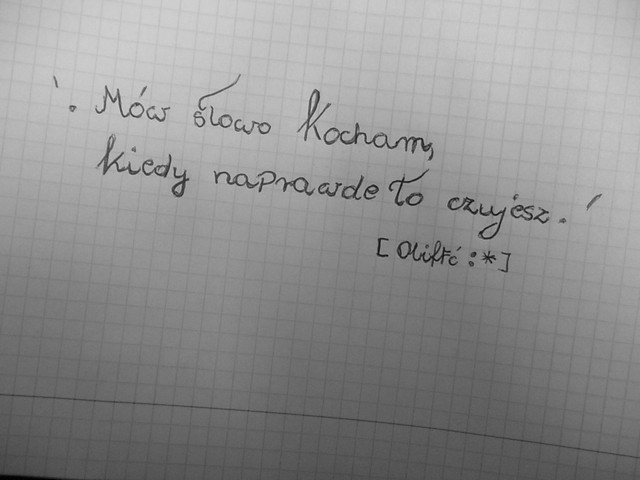 '. Mów słowo Kocham,
kiedy naprawde to czujesz. '
[ :*]